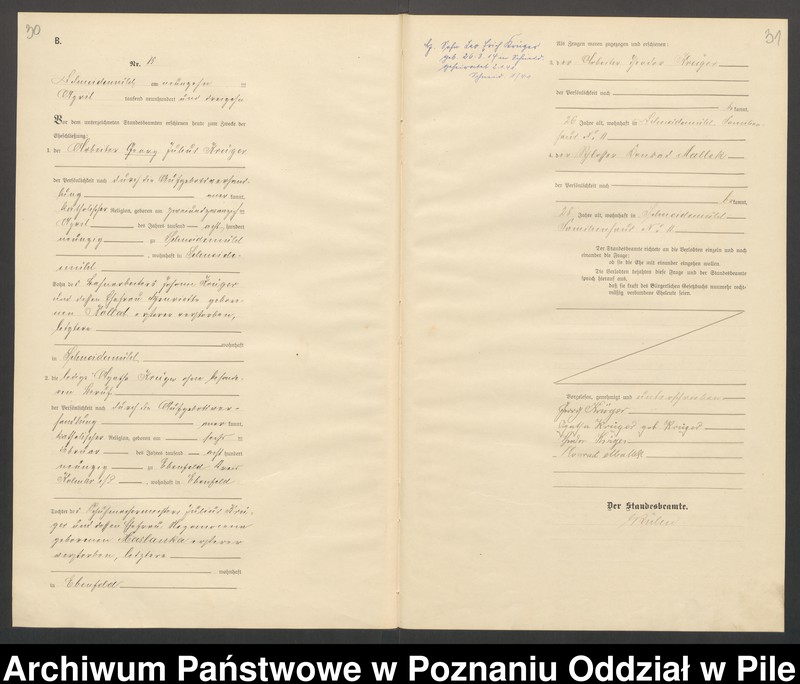 30
B.
Nr. 18
Schneidemühl am neunzehn ten
April tausend neunhundert und vierzehn
Vor dem unterzeichneten Standesbeamten erschienen heute zum Zwecke der
Eheschließung:
1. der Arbeiter Georg Julius Krüger
der Persönlichkeit nach durch die Aufgebotsverhand-
lung kannt,
katholischer Religion, geboren am ten
April des Jahres tausend acht hundert
neunzig zu Schneidemühl
, wohnhaft in Schneide-
mühl
Sohn des Bahnarbeiters Johann Krüger
und dessen Ehefrau Henriette gebore-
nen Kollat ersterer verstorben,
letztere
wohnhaft
in Schneidemühl
2. die ledige Agathe Krüger ohne besonde-
ren Beruf
der Persönlichkeit nach durch die Aufgebotsver-
handlung kannt,
katholischer Religion, geboren am sechs ten
Februar des Jahres tausend acht hundert
neunzig zu Ebenfeld Kreis
Kolmar i/P. , wohnhaft in Ebenfeld
Tochter des Schuhmachermeisters Julius Krü-
ger und dessen Ehefrau
geborenen ersterer
verstorben, letztere
wohnhaft
in Ebenfeld
31
Sohn Leo Erich Krüger
geb. 26.3.19 in Schneid.
geheiratet
Schneid.
Als Zeugen waren zugezogen und erschienen:
3. der Arbeiter Krüger
der Persönlichkeit nach
be kannt,
26 Jahre alt, wohnhaft in Schneidemühl, Familien-
haus
4. der Schlosser Konrad
der Persönlichkeit nach
be kannt,
Jahre alt, wohnhaft in Schneidemühl
Familienhaus
Der Standesbeamte richtete an die Verlobten einzeln und nach
einander die Frage:
ob sie die Ehe mit einander eingehen wollen.
Die Verlobten bejahten diese Frage und der Standesbeamte
sprach hierauf aus,
daß sie kraft des Bürgerlichen Gesetzbuchs nunmehr recht-
mäßig verbundene Eheleute seien.
Vorgelesen, genehmigt und unterschrieben
Georg Krüger
Agatha Krüger geb. Krüger
Krüger
Konrad
Der Standesbeamte.
Archiwum Państwowe w Poznaniu Oddział w Pile